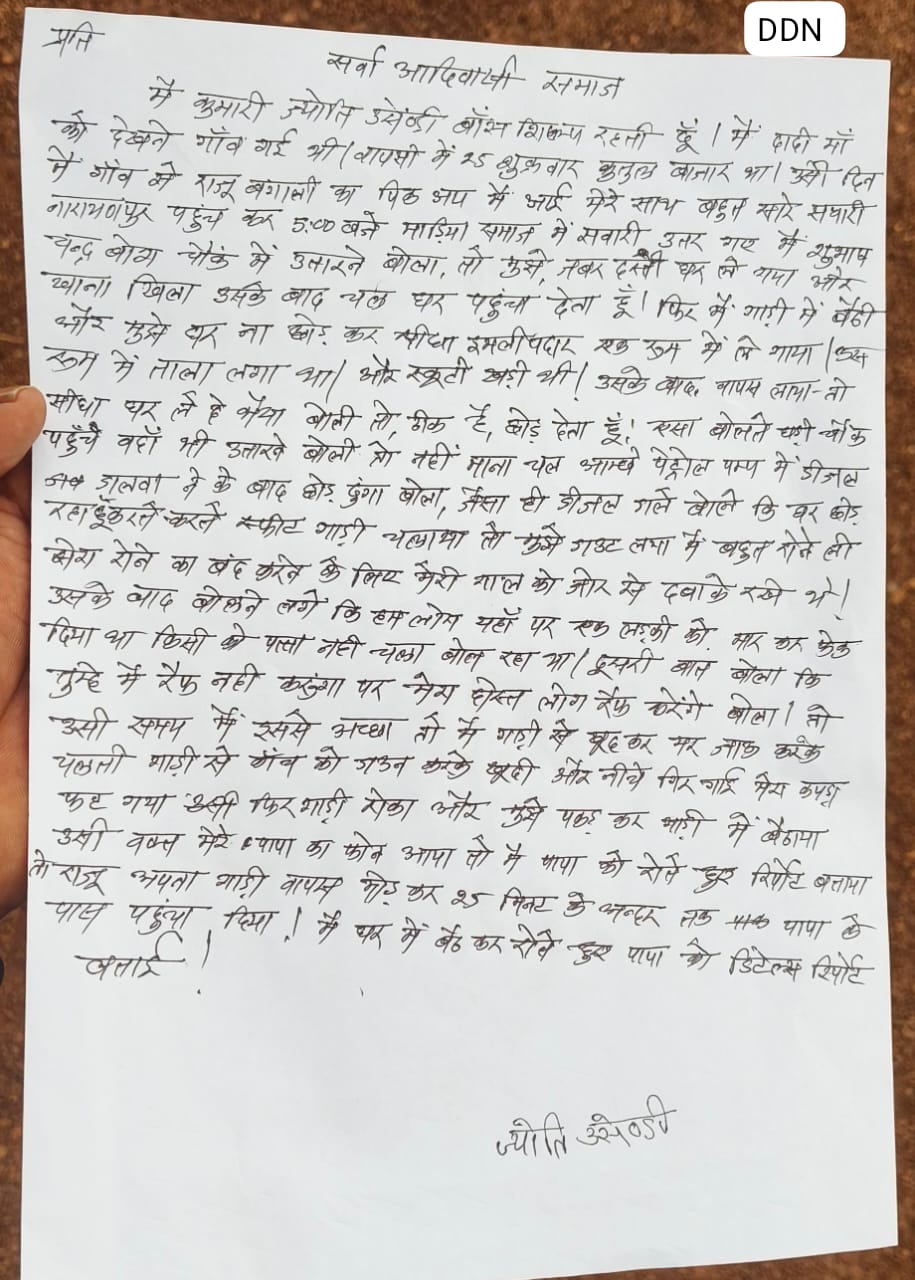 DDN
प्रति
सर्वा आदिवासी समाज
मैं कुमारी ज्योति उसेण्डी बाँस शिल्प रहती हूँ। मैं दादी माँ
को देखने गाँव गई थी। वापसी में 25 शुक्रवार कुतुल बाजार था। उसी दिन
मैं गाँव से राजू बंगाली का पिक अप में आई मेरे साथ बहुत सारे सवारी
नारायणपुर पहुंच कर 5:00 बजे माड़िया समाज में सवारी उतर गए मैं शुभाष
चन्द्र बोस चौक में उतारने बोला, तो मुझे जबरदस्ती घर ले गया और
खाना खिला उसके बाद चल घर पहुंचा देता हूँ। फिर मैं गाड़ी में बैठी
और मुझे घर ना छोड़ कर सीधा इमलीपदार एक रूम में ले गया। उस
रूम में ताला लगा था। और स्कूटी खड़ी थी। उसके बाद वापस लाया तो
सीधा घर ले दे भैया बोली तो, ठीक है, छोड़ देता हूँ! एसा बोलते चौक
पहुँचे वहाँ भी उतारने बोली तो नहीं माना चल आगे पेट्रोल पम्प में डीजल
डालवा ने के बाद छोड़ दुंगा बोला, जैसा ही डीजल बोले कि घर छोड़
रहा हूँ करते-करते स्पीट गाड़ी चलाया तो मुझे लगा मैं बहुत रोने ली
मेरा रोने का बंद करने के लिए मेरी गाल को जोर से दबाके रखे थे!
उसके बाद बोलने लगे कि हम लोग यहाँ पर एक लड़की को मार कर फेंक
दिया था किसी को पता नहीं चला बोल रहा था। दूसरी बात बोला कि
तुम्हे मैं रैफ नहीं करुंगा पर मेरा दोस्त लोग रैफ करेंगे बोला। तो
उसी समय मैं इससे अच्छा तो मैं गाड़ी से कूदकर मर जाऊ करके
चलती गाड़ी से पाँव को डाउन करके कूदी और नीचे गिर गई मेरा कपड़ा
फट गया उसी फिर गाड़ी रोका और मुझे पकड़ कर गाड़ी में बैठाया
उसी वक्त मेरे पापा का फोन आया तो मैं पापा को रोते हुए रिर्पोट बताया
तो राजू अपना गाड़ी वापस मोड़ कर 25 मिनट के अन्दर तक पापा के
पास पहुंचा दिया! मैं घर में बैठ कर रोते हुए पापा को डिटेल्स रिर्पोट
बताई!
ज्योति उसेण्डी